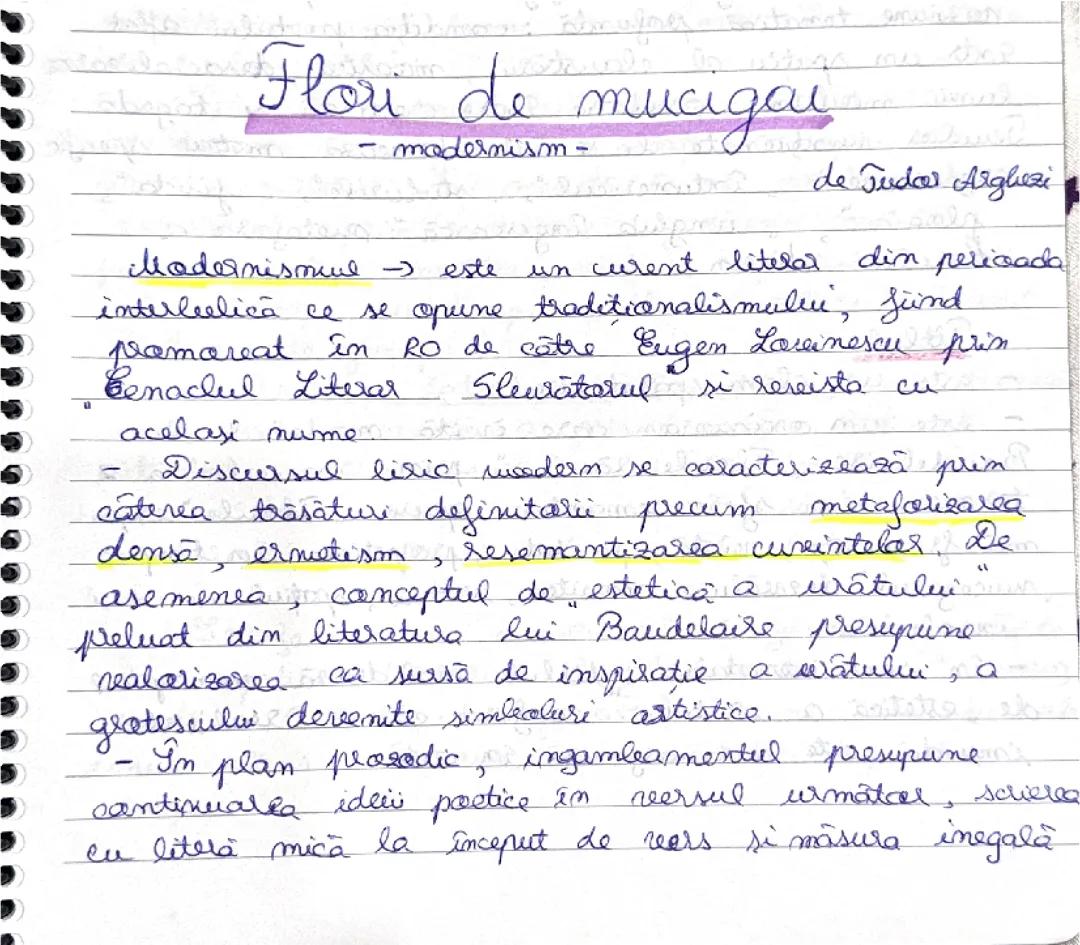 Flori de mucigai
- modernism -
de Tudor Arghezi
Modernismul → este un curent literar din perioada
interbelică ce se opune tradiționalismului, fiind
promovat în RO de către Eugen Lovinescu prin
"Cenaclul Literar Sburătorul" si revista cu
acelasi nume
- Discursul liric modern se caracterizează prin
câteva trăsături definitorii precum metaforizarea
densă, ermetism, resemantizarea cuvintelor. De
asemenea, conceptul de "estetică a urâtului"
preluat din literatura lui Baudelaire presupune
valorizarea ca sursă de inspirație a urâtului, a
grotescului devenite simboluri artistice.
- În plan prozodic, ingambamentul presupune
continuarea ideii poetice în versul următor, scrierea
cu literă mică la început de vers și măsura inegală